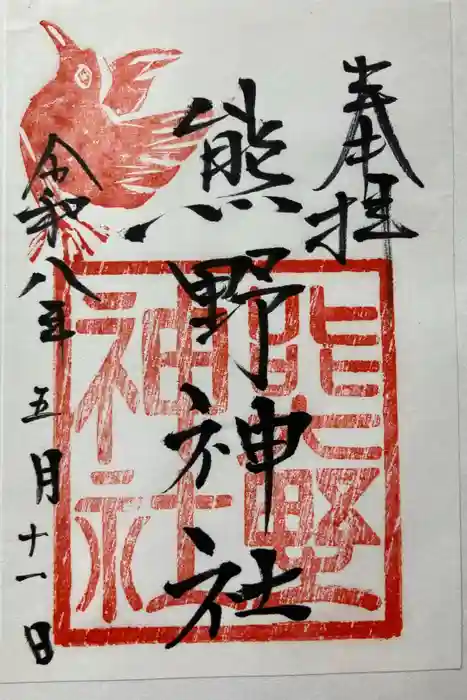 奉拝
熊野神社
令和八年
五月十一日
熊野
神社